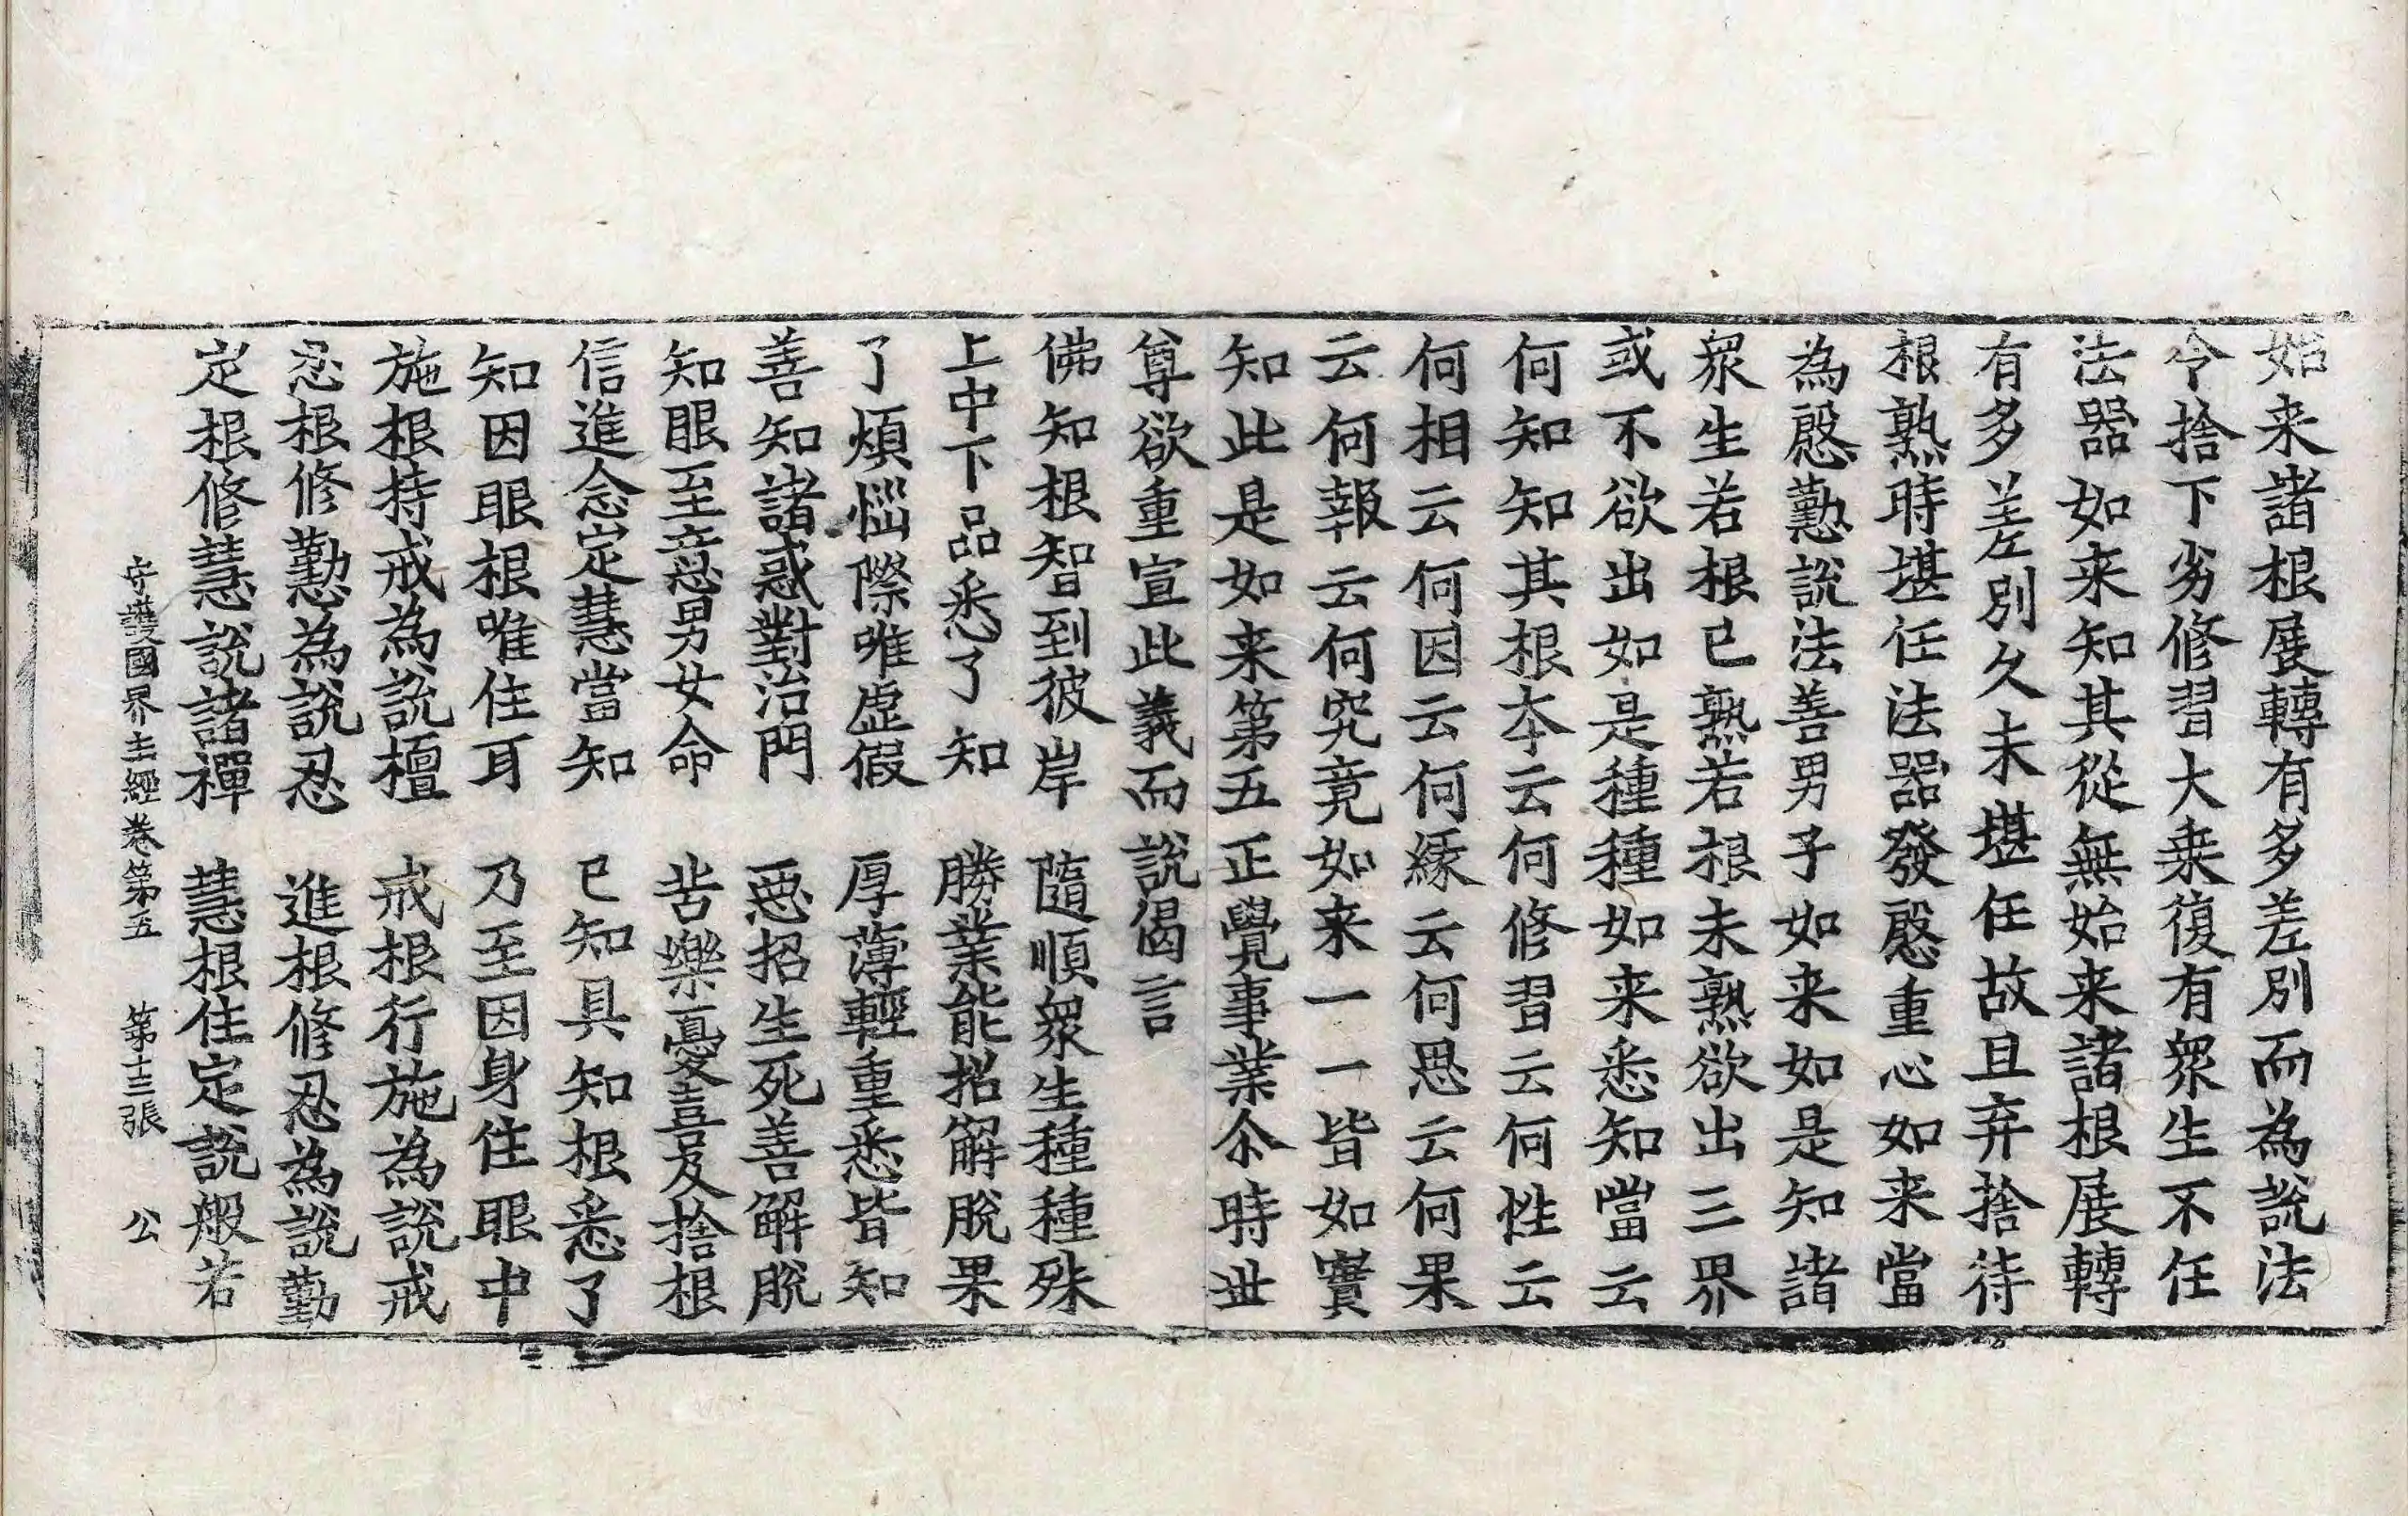 始来諸根展轉有多差別而為說法
令捨下劣修習大乗復有衆生不任
法器如来知其從無始来諸根展轉
有多差別久未堪任故且弃捨待
根熟時堪任法器發慇重心如来當
為慇懃說法善男子如来如是知諸
衆生若根已熟若根未熟欲出三界
或不欲出如是種種如来悉知當云
何知知其根本云何修習云何性云
何相云何因云何緣云何思云何果
云何報云何究竟如来一一皆如實
知此是如来第五正覺事業尒時丗
尊欲重宣此義而說偈言
佛知根智到彼岸　隨順衆生種種殊
上中下品悉了知　勝業能招解脫果
了煩惱際唯虛假　厚薄輕重悉皆知
善知諸惑對治門　惡招生死善解脫
知眼至意男女命　苦樂憂喜及捨根
信進念定慧當知　已知具知根悉了
知因眼根唯住耳　乃至因身住眼中
施根持戒為說檀　戒根行施為說戒
忍根修懃為說忍　進根修忍為說勤
定根修慧說諸禪　慧根住定說般若
守護國界主經卷第五　第十三張　公